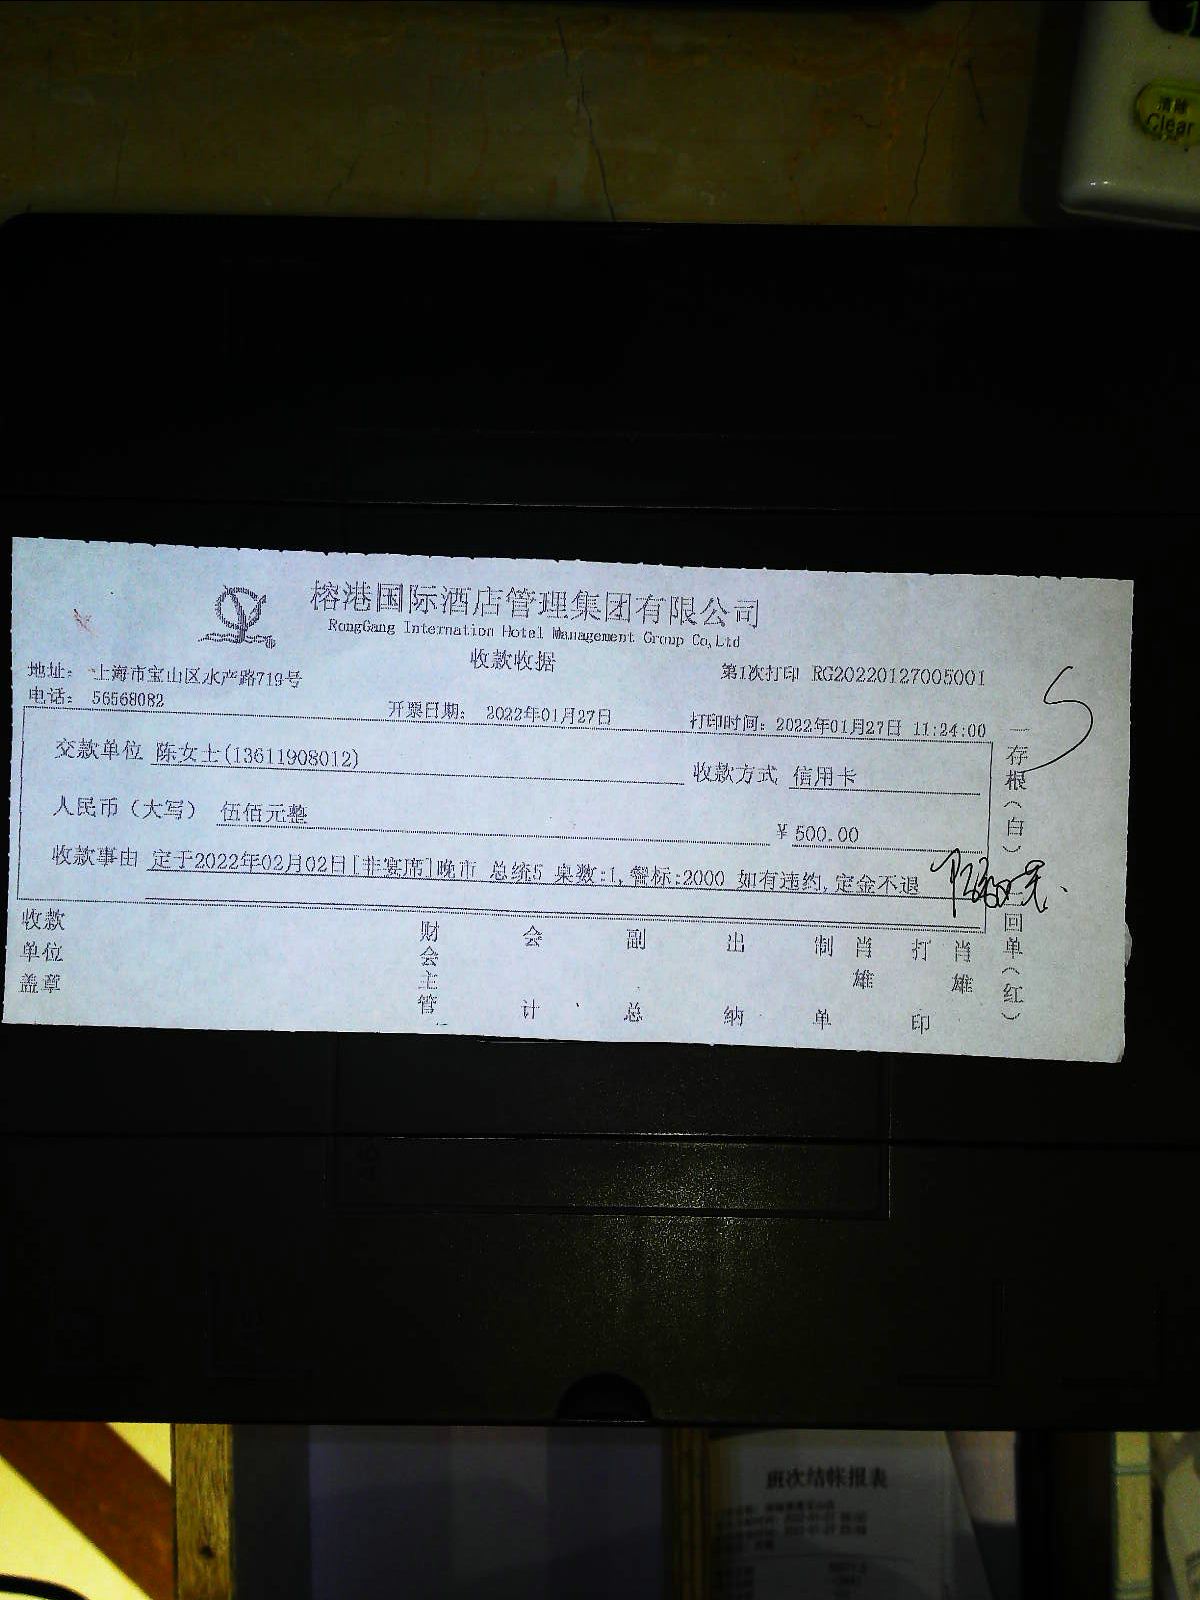 清除
Clear
榕港国际酒店管理集团有限公司
RongGang Internation Hotel Management Group Co,Ltd
收款收据
地址： 上海市宝山区水产路719号
第1次打印 RG20220127005001
电话： 56568082
开票日期： 2022年01月27日
打印时间：2022年01月27日 11:24:00
交款单位 陈女士(13611908012)
收款方式 信用卡
人民币（大写） 伍佰元整
￥500.00
收款事由 定于2022年02月02日[非宴席]晚市 总统5 桌数:1,餐标:2000 如有违约,定金不退
收款单位盖章
财会主管
会计
副总
出纳
制单
肖雄
打印
肖雄
一存根（白）
二回单（红）
5
班次结帐报表